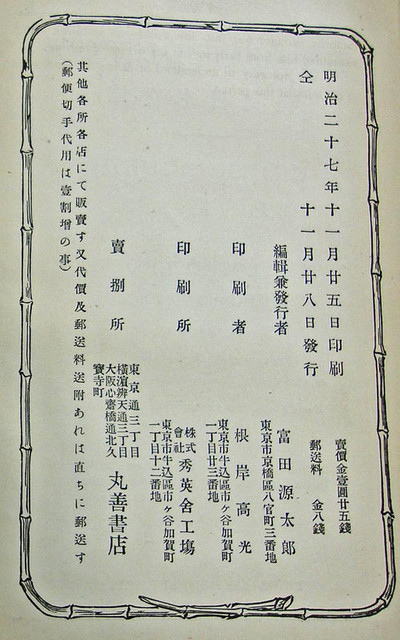 明治二十七年十一月廿五日印刷
仝　十一月廿八日發行
賣價金壹圓廿五錢
郵送料　金八錢
編輯兼發行者
富田源太郎
東京市京橋區八官町三番地
印刷者
根岸高光
東京市牛込區市ヶ谷加賀町
一丁目廿三番地
印刷所
株式會社 秀英舍工塲
東京市牛込區市ヶ谷加賀町
一丁目十二番地
賣捌所
東京通三丁目
橫濵辨天通三丁目
大阪心齋橋通北久
寳寺町
丸善書店
其他各所各店にて販賣す又代價及郵送料送附あれは直ちに郵送す
（郵便切手代用は壹割增の事）